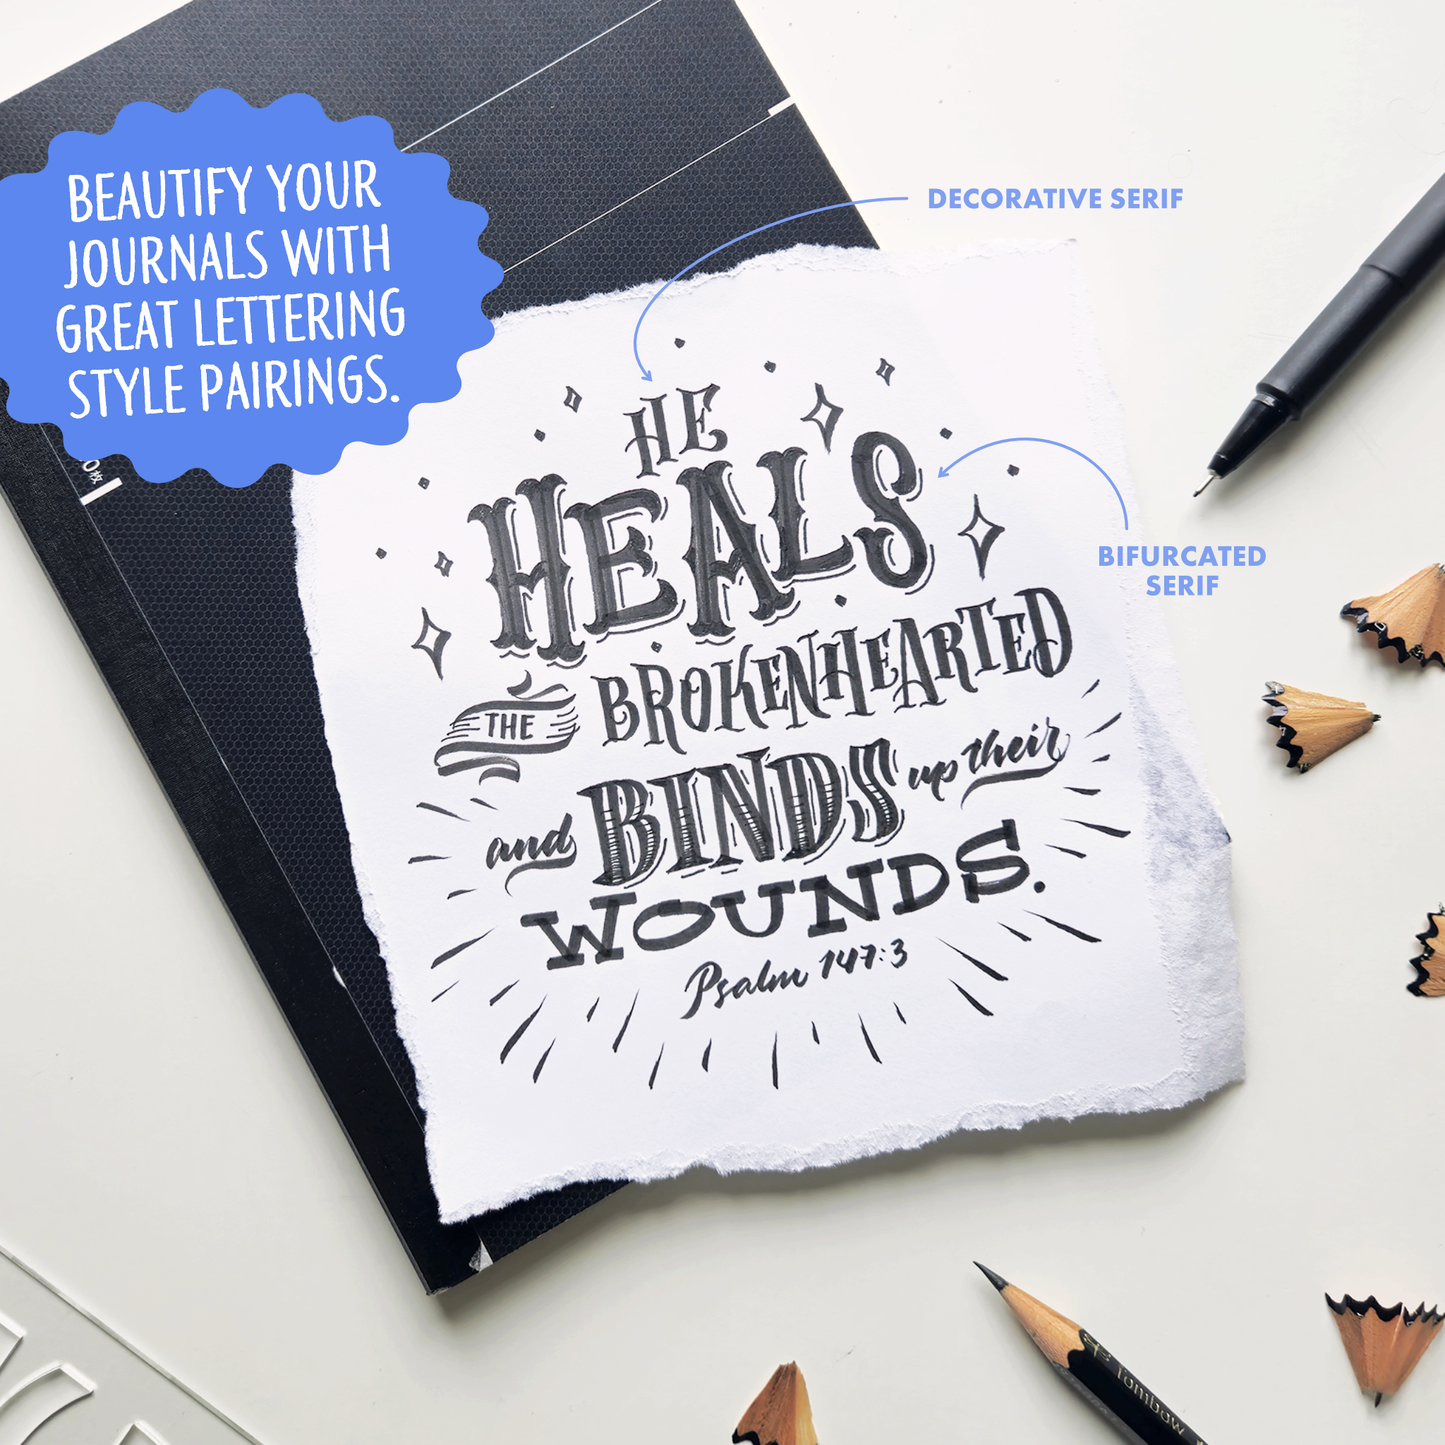 BEAUTIFY YOUR
JOURNALS WITH
GREAT LETTERING
STYLE PAIRINGS.
DECORATIVE SERIF
BIFURCATED
SERIF
HE
HEALS
THE BROKENHEARTED
and BINDS up their
WOUNDS.
Psalm 147:3
Tombow